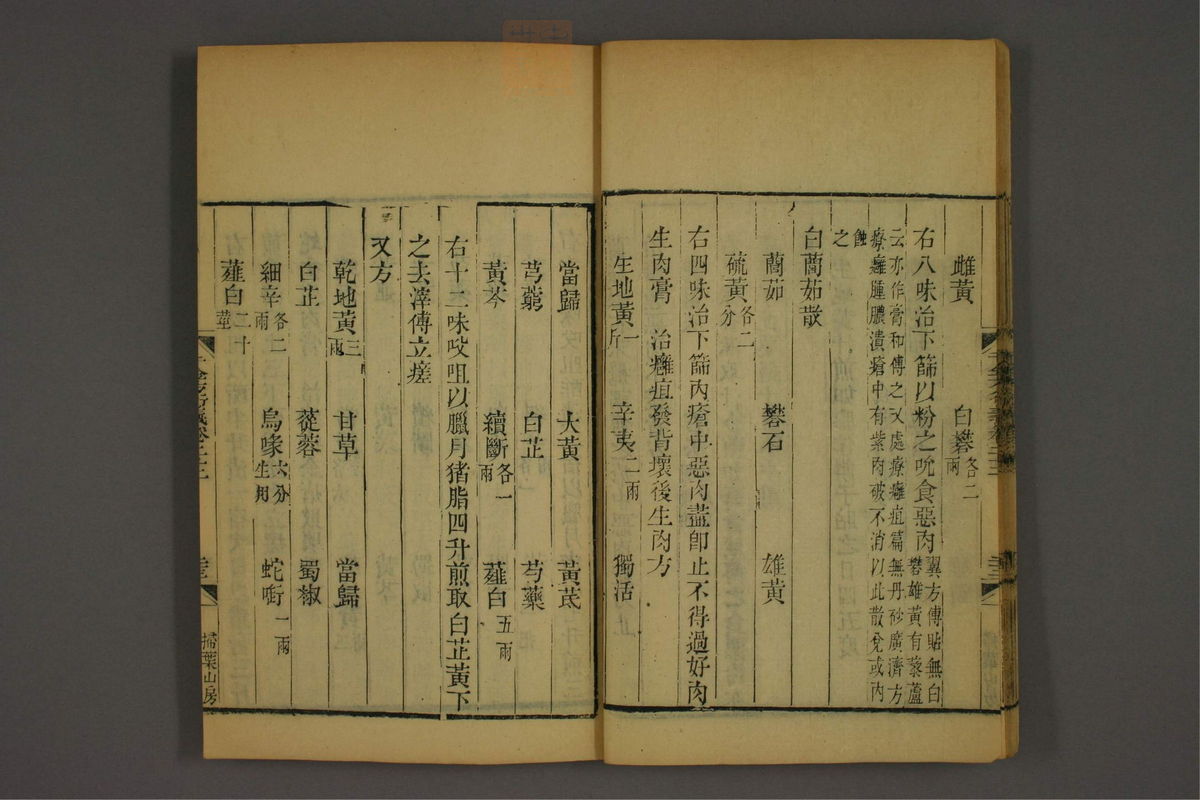 雌黃 白礬各二兩
右八味治下篩以粉之吮食惡肉翼方傅貼無白礬雄黃有藜蘆
云亦作膏和傅之又處療癰疽篇無丹砂廣濟方
療癰腫膿潰瘡中有紫肉破不消以此散兌或內
蝕之
白䕡茹散
䕡茹 礬石 雄黃
硫黃各二分
右四味治下篩內瘡中惡肉盡即止不得過好肉
生肉膏 治癰疽發背壞後生肉方
生地黃一斤 辛夷二兩 獨活
當歸 大黃 黃芪
芎藭 白芷 芍藥
黃芩 續斷各一兩 薤白五兩
右十二味㕮咀以臘月猪脂四升煎取白芷黃下
之去滓傅立瘥
又方
乾地黃三兩 甘草 當歸
白芷 蓯蓉 蜀椒
細辛各二兩 烏喙六分生用 蛇銜一兩
薤白二十莖
掃葉山房